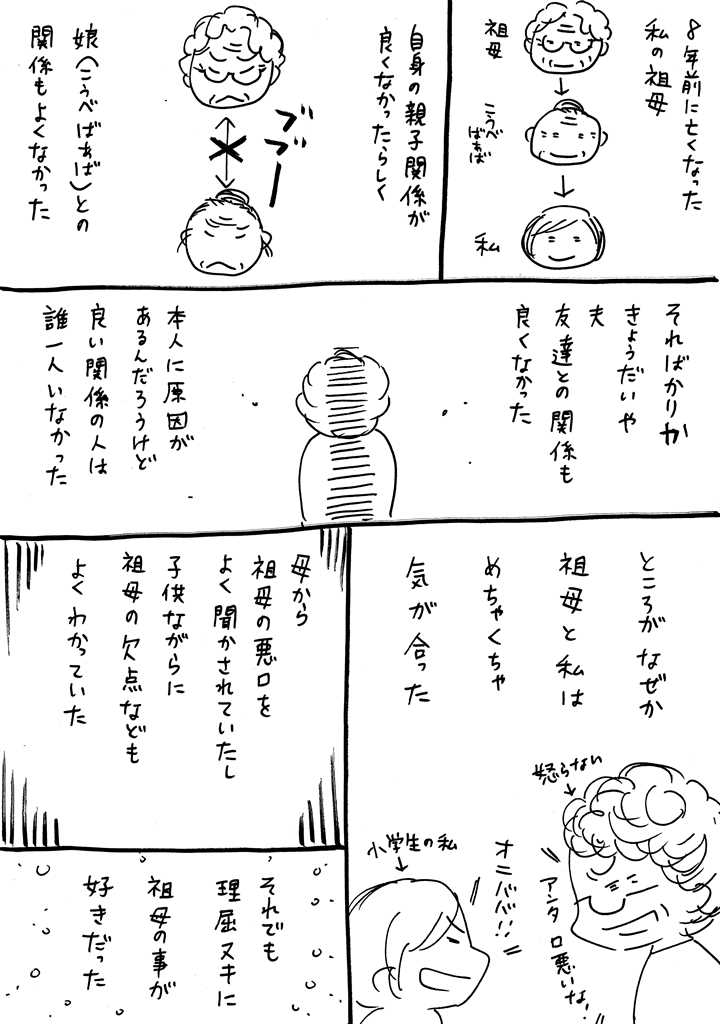 8年前に亡くなった
私の祖母
祖母
こうべ
ばぁば
私
自身の親子関係が
良くなかったらしく
ブ
ブー
娘(こうべばぁば)との
関係もよくなかった
そればかりか
きょうだいや
夫
友達との関係も
良くなかった
本人に原因が
あるんだろうけど
良い関係の人は
誰一人いなかった
ところがなぜか
祖母と私は
めちゃくちゃ
気が合った
怒らない
アンタ口悪いな!
オニババ!!
小学生の私
母から
祖母の悪口を
よく聞かされていたし
子供ながらに
祖母の欠点なども
よくわかっていた
それでも
理屈ヌキに
祖母の事が
好きだった